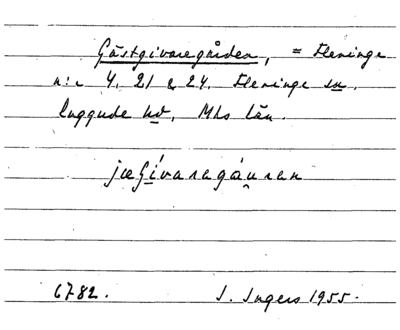 Gästgivaregården, = Fleninge
n:r 4, 21 & 24. Fleninge sn.
Luggude hd, Mhs län.
jæſtívaragáu̯ran
6782. I. Ingers 1955.